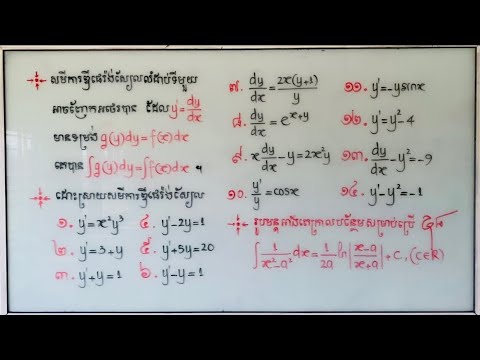 សមីការឌីផេរ៉ង់ស្យែលលំដាប់ទីមួយ
អាចញែកអថេរបាន ដែល y' = dy/dx
មានទម្រង់ g(y)dy = f(x)dx
គេបាន ∫g(y)dy = ∫f(x)dx ។
ដោះស្រាយសមីការឌីផេរ៉ង់ស្យែល
១. y' = x²y³
២. y' = 3 + y
៣. y' + y = 1
៤. y' - 2y = 1
៥. y' + 5y = 20
៦. y' - y = 1
៧. dy/dx = 2x(y+1)/y
៨. dy/dx = e^(x+y)
៩. x dy/dx - y = 2x²y
១០. y'/y = cosx
១១. y' = -ysinx
១២. y' = y² - 4
១៣. dy/dx - y² = -9
១៤. y' - y² = -1
រូបមន្តអាំងតេក្រាលបន្ថែមសម្រាប់ប្រើ
∫ 1/(x²-a²) dx = 1/2a ln |(x-a)/(x+a)| + C, (C∈ℝ)